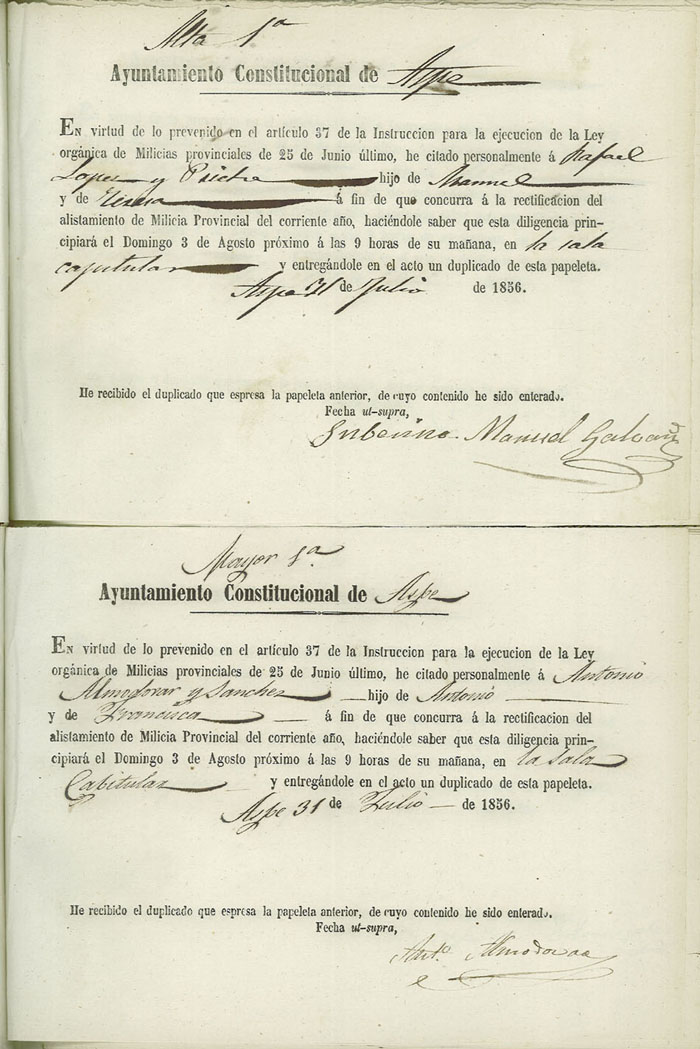 Alta 1ª
Ayuntamiento Constitucional de Aspe
EN virtud de lo prevenido en el artículo 37 de la Instruccion para la ejecucion de la Ley
orgánica de Milicias provinciales de 25 de Junio último, he citado personalmente á Rafael
Lopez y hijo de Manuel
y de á fin de que concurra á la rectificacion del
alistamiento de Milicia Provincial del corriente año, haciéndole saber que esta diligencia prin-
cipiará el Domingo 3 de Agosto próximo á las 9 horas de su mañana, en la sala
capitular y entregándole en el acto un duplicado de esta papeleta.
Aspe 31 de Julio de 1856.
He recibido el duplicado que espresa la papeleta anterior, de cuyo contenido he sido enterado.
Fecha ut-supra,
Manuel Galvañ
Mayor 1ª
Ayuntamiento Constitucional de Aspe
EN virtud de lo prevenido en el artículo 37 de la Instruccion para la ejecucion de la Ley
orgánica de Milicias provinciales de 25 de Junio último, he citado personalmente á Antonio
Almodovar y Sanchez hijo de Antonio
y de Francisca á fin de que concurra á la rectificacion del
alistamiento de Milicia Provincial del corriente año, haciéndole saber que esta diligencia prin-
cipiará el Domingo 3 de Agosto próximo á las 9 horas de su mañana, en la Sala
Capitular y entregándole en el acto un duplicado de esta papeleta.
Aspe 31 de Julio de 1856.
He recibido el duplicado que espresa la papeleta anterior, de cuyo contenido he sido enterado.
Fecha ut-supra,
Antº Almodovar